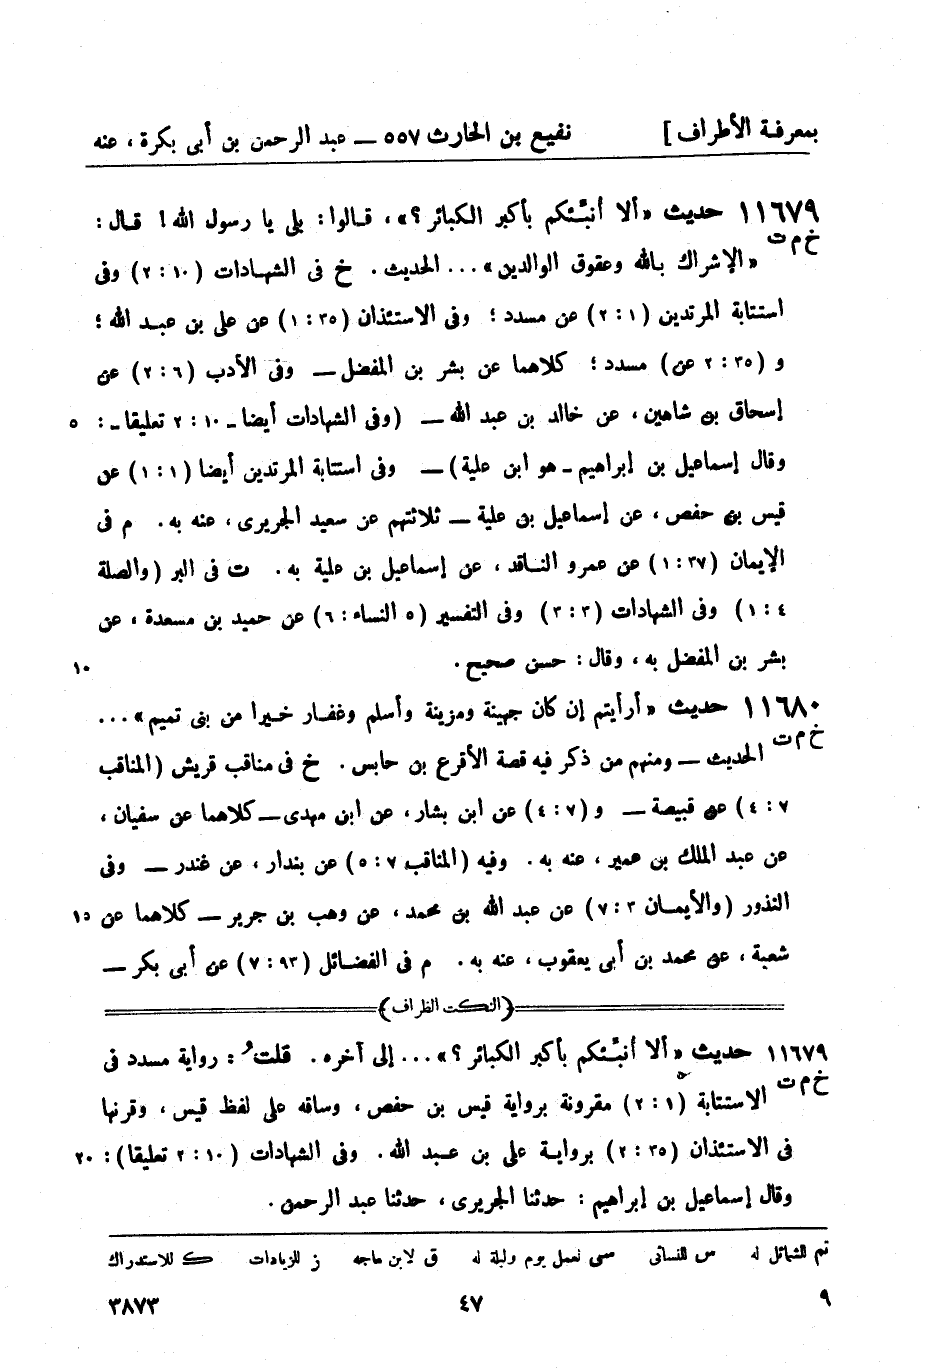 بمعرفة الأطراف ] نفيع بن الحارث ٥٥٧ ــ عبد الرحمن بن أبى بكرة ، عنه
١١٦٧٩ حديث « ألا أنبِّئكم بأكبر الكبائر ؟ » ، قالوا : بلى يا رسول الله ! قال :
خ م ت « الإشراك بالله وعقوق الوالدين » ... الحديث . خ فى الشهادات ( ١٠ : ٢ ) وفى
استتابة المرتدين ( ١ : ٢ ) عن مسدد ؛ وفى الاستئذان ( ٣٥ : ١ ) عن على بن عبد الله ؛
و ( ٣٥ : ٢ عن ) مسدد ؛ كلاهما عن بشر بن المفضل ــ وفى الأدب ( ٦ : ٢ ) عن
إسحاق بن شاهين ، عن خالد بن عبد الله ــ ( وفى الشهادات أيضا ـ ١٠ : ٢ تعليقا ـ : ٥
وقال إسماعيل بن إبراهيم ـ هو ابن علية ) ــ وفى استتابة المرتدين أيضا ( ١ : ١ ) عن
قيس بن حفص ، عن إسماعيل بن علية ــ ثلاثتهم عن سعيد الجريرى ، عنه به . م فى
الإيمان ( ٣٧ : ١ ) عن عمرو الناقد ، عن إسماعيل بن علية به . ت فى البر ( والصلة
٤ : ١ ) وفى الشهادات ( ٣ : ٣ ) وفى التفسير ( ٥ النساء : ٦ ) عن حميد بن مسعدة ، عن
بشر بن المفضل به ، وقال : حسن صحيح . ١٠
١١٦٨٠ حديث « أرأيتم إن كان جهينة ومزينة وأسلم وغفار خيرا من بنى تميم » ...
خ م ت الحديث ــ ومنهم من ذكر فيه قصة الأقرع بن حابس . خ فى مناقب قريش ( المناقب
٧ : ٤ ) عن قبيصة ــ و ( ٧ : ٤ ) عن ابن بشار ، عن ابن مهدى ــ كلاهما عن سفيان ،
عن عبد الملك بن عمير ، عنه به . وفيه ( المناقب ٧ : ٥ ) عن بندار ، عن غندر ــ وفى
النذور ( والأيمان ٣ : ٧ ) عن عبد الله بن محمد ، عن وهب بن جرير ــ كلاهما عن ١٥
شعبة ، عن محمد بن أبى يعقوب ، عنه به . م فى الفضائل ( ٩٣ : ٧ ) عن أبى بكر ــ
( النكت الظراف )
١١٦٧٩ حديث « ألا أنبِّئكم بأكبر الكبائر ؟ » ... إلى آخره . قلتُ : رواية مسدد فى
خ م ت الاستتابة ( ١ : ٢ ) مقرونة برواية قيس بن حفص ، وساقه على لفظ قيس ، وقرنها
فى الاستئذان ( ٣٥ : ٢ ) برواية على بن عبد الله . وفى الشهادات ( ١٠ : ٢ تعليقا ) : ٢٠
وقال إسماعيل بن إبراهيم : حدثنا الجريرى ، حدثنا عبد الرحمن .
تم للشمائل له س للنسائى سى لعمل يوم وليلة له ق لابن ماجه ز للزيادات ك للاستدراك
٩ ٤٧ ٣٨٧٣